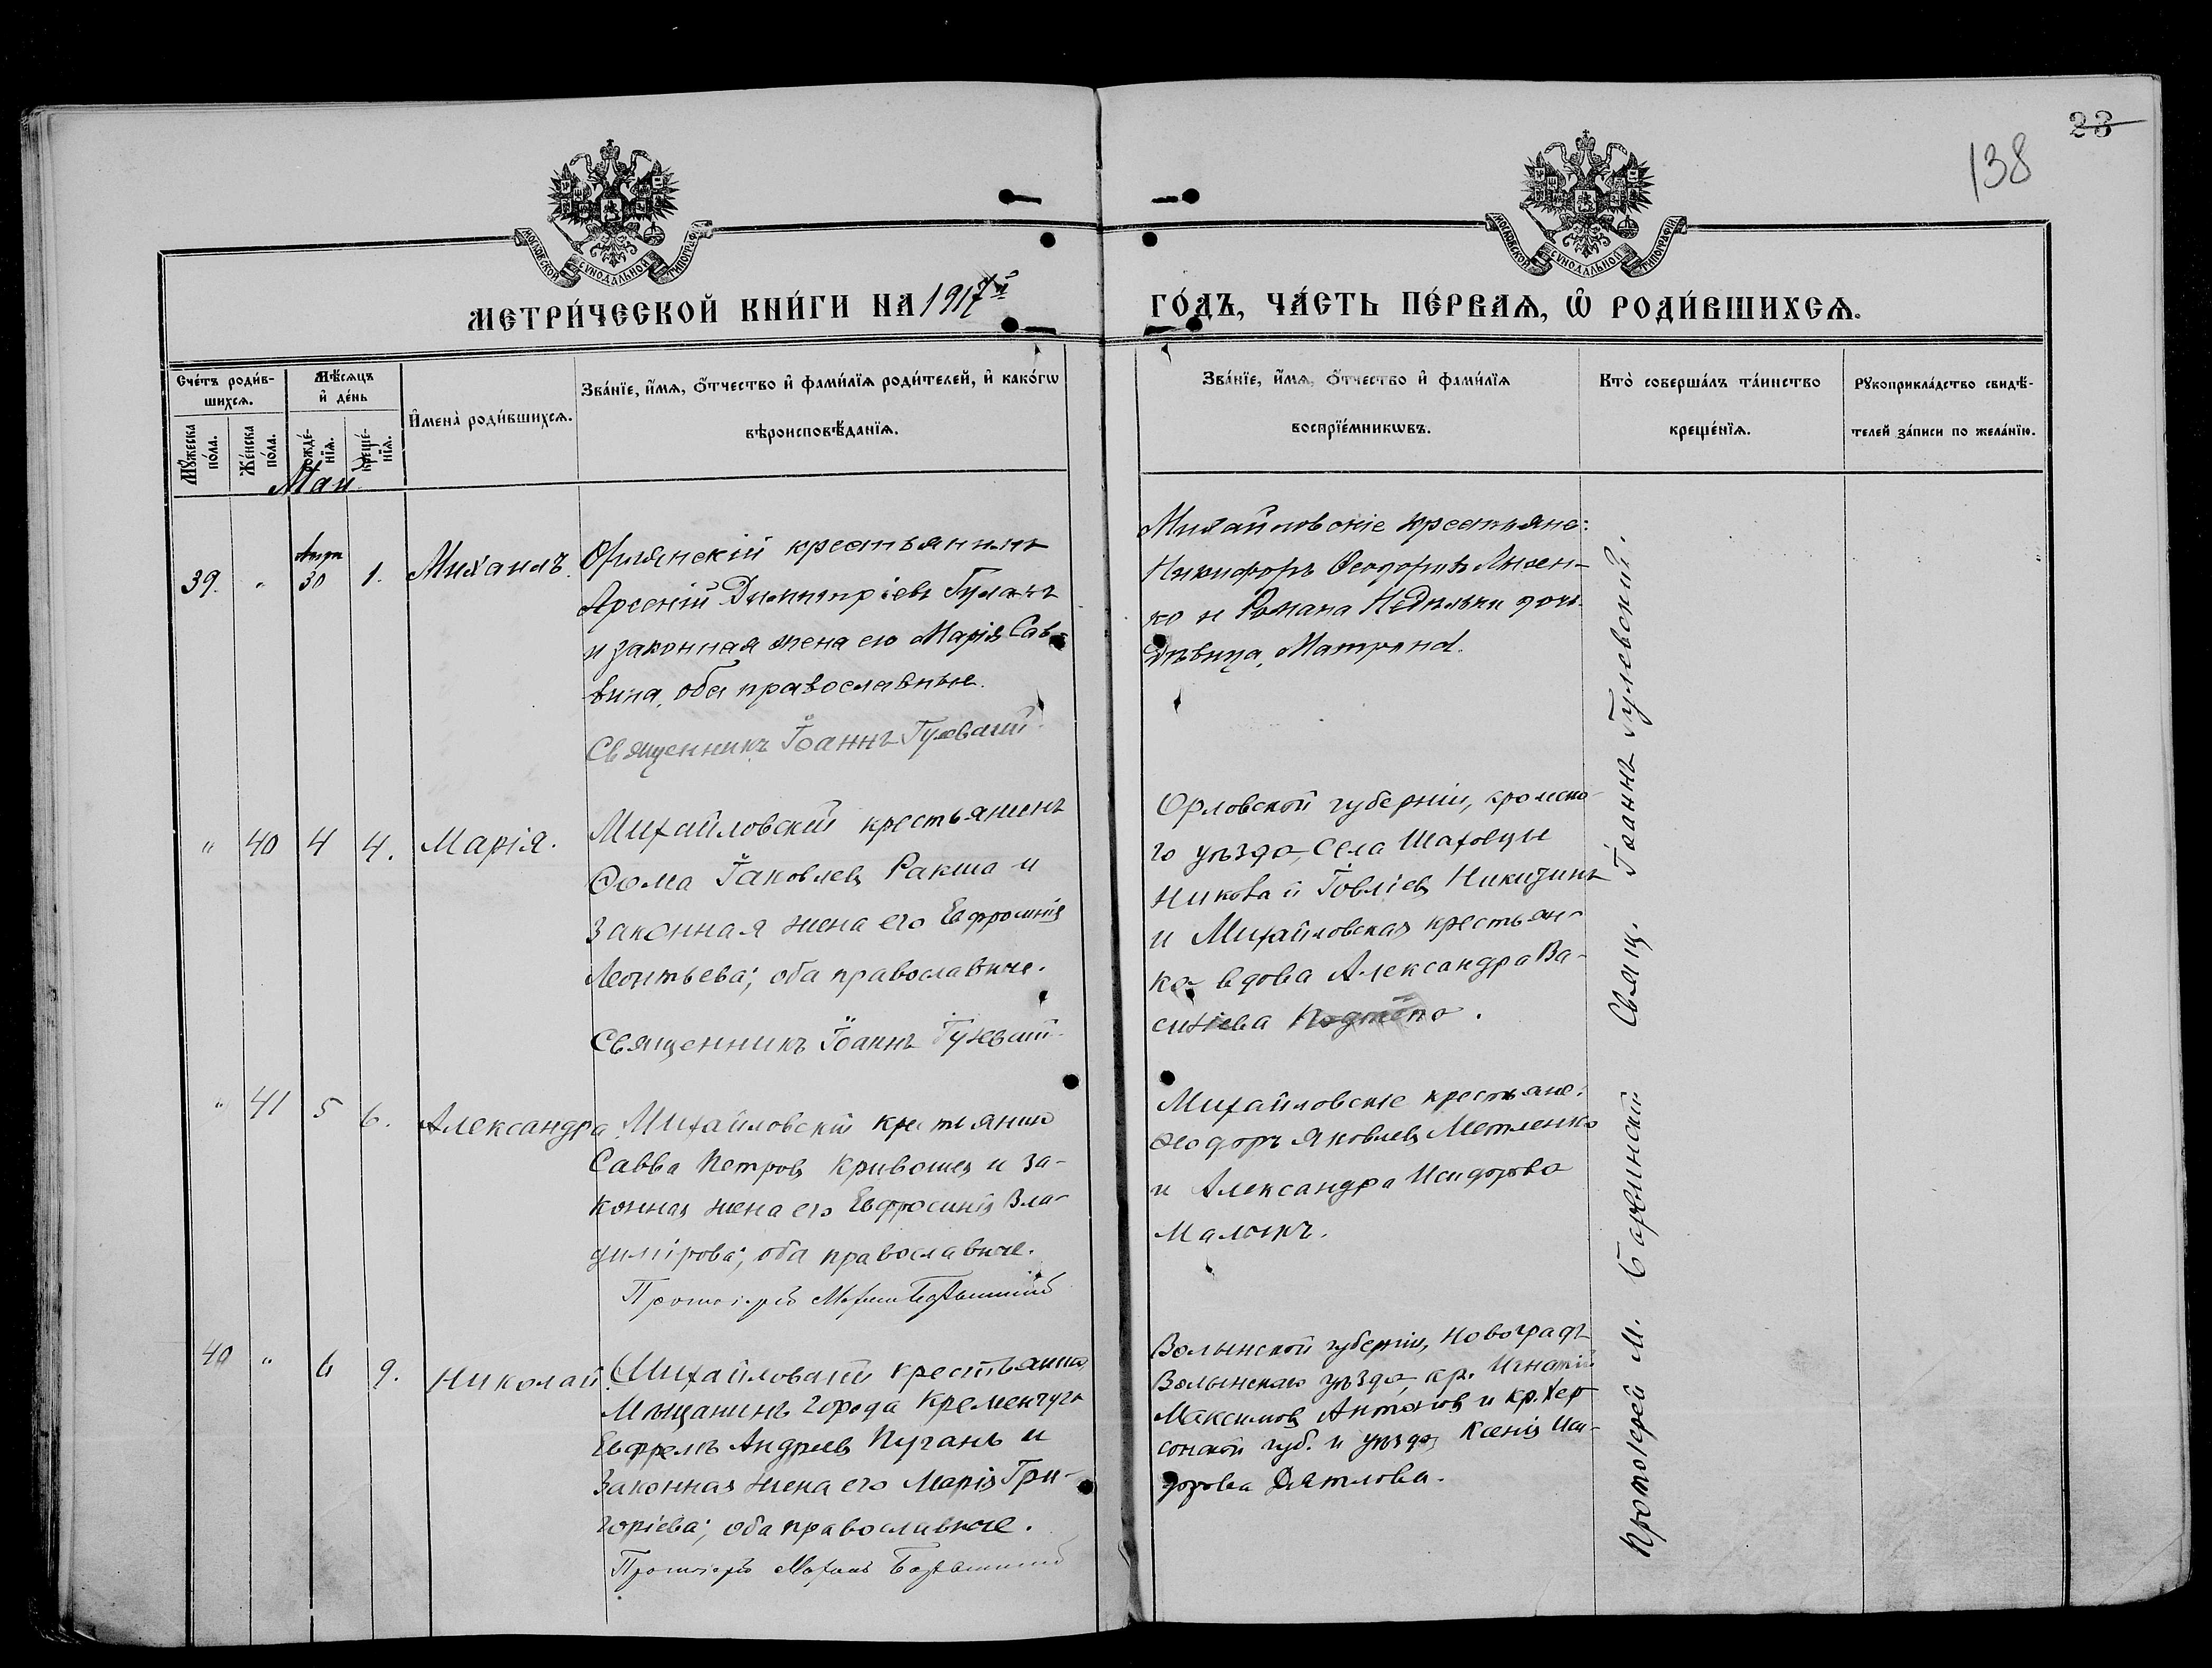 23
138
МОСКОВСКОЙ СУНОДАЛЬНОЙ ТИПОГРАФІИ
МОСКОВСКОЙ СУНОДАЛЬНОЙ ТИПОГРАФІИ
МЕТРИ́ЧЕСКОЙ КНИ́ГИ НА 1917й
ГО́ДЪ, ЧА́СТЬ ПЕ́РВАѦ, Ѽ РОДИ́ВШИХСѦ.
Сче́тъ роди́в-
шихсѧ.
Мꙋ́жеска по́ла.
Же́нска по́ла.
Мѣ́сѧцъ
и҆ де́нь
рожде́-
нїѧ.
креще́-
нїѧ.
И҆мена̀ роди́вшихсѧ.
Зва́нїе, и҆́мѧ, ѻ҆́тчество и҆ фами́лїѧ роди́телей, и҆ како́гѡ
вѣроисповѣ́данїѧ.
Зва́нїе, и҆́мѧ, ѻ҆́тчество и҆ фами́лїѧ
воспрїе́мникѡвъ.
Кто̀ соверша́лъ та́инство
креще́нїѧ.
Рꙋкоприкла́дство свидѣ́-
телей за́писи по жела́нїю.
Май
39. " 30 1. Михаилъ.
крестьянинъ
Арсеній Димитріевъ Гуланъ
и законная жена его Марія Сав-
вина, оба православные.
Священникъ Іоаннъ Гулевскій
Михайловскіе крестьяне:
Никифоръ Ѳеодоровъ Лысен-
ко и Романа Недѣльки дочь
дѣвица, Матрона.
" 40 4 4. Марія.
Михайловскій крестьянинъ
Ѳома Іаковлевъ Ракша и
законная жена его Евфросинія
Леонтьева; оба православные.
Священникъ Іоаннъ Гулевскій
Орловской губерніи, кромска-
го уѣзда, села Шаховцы
Никитинъ
и Михайловская крестьян-
ка вдова Александра Ва-
силіева
" 41 5 6. Александра
Михайловскій крестьянинъ
Савва Петровъ Кривошея и за-
конная жена его Евфросинія Вла-
димірова; оба православные.
Протоіерей
Михайловскіе крестьяне:
Ѳеодоръ Яковлевъ Метленко
и Александра Исидорова
Малыкъ.
40 " 6 9. Николай.
Михайловскій крестьянинъ,
Мѣщанинъ города Кременчуга
Ефремъ Андреевъ Пугачъ и
законная жена его Марія Гри-
горіева; оба православные.
Протоіерей
Волынской губерніи, Новоградъ
Волынскаго уѣзда, кр. Игнатій
Максимовъ Антоновъ и кр. Хер-
сонской губ. и уѣзда, Ксенія Иси-
дорова Дятлова.
Протоіерей М. Свящ. Іоаннъ Гулевский.